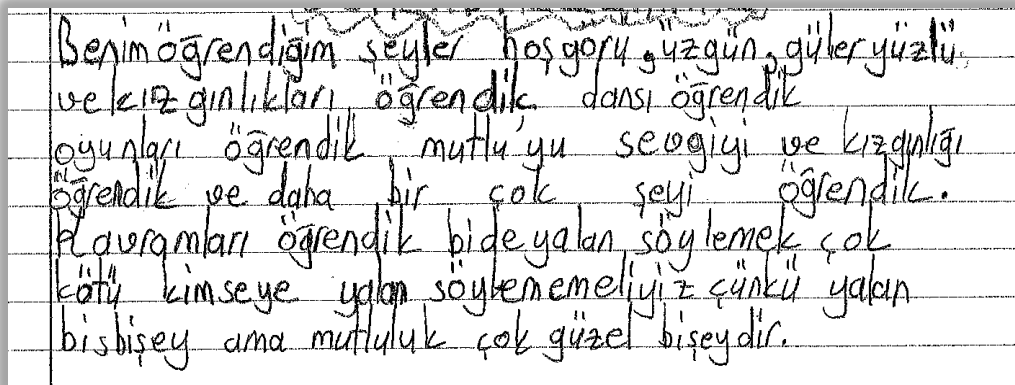 Benim öğrendiğim şeyler hoşgörü, üzgün, güler yüzlü
ve kızgınlıkları öğrendik dansı öğrendik
oyunları öğrendik mutlu'yu sevgiyi ve kızgınlığı
öğrendik ve daha bir çok şeyi öğrendik.
Kavramları öğrendik bide yalan söylemek çok
kötü kimseye yalan söylenemeliyiz çünkü yalan
bisbişey ama mutluluk çok güzel bişeydir.